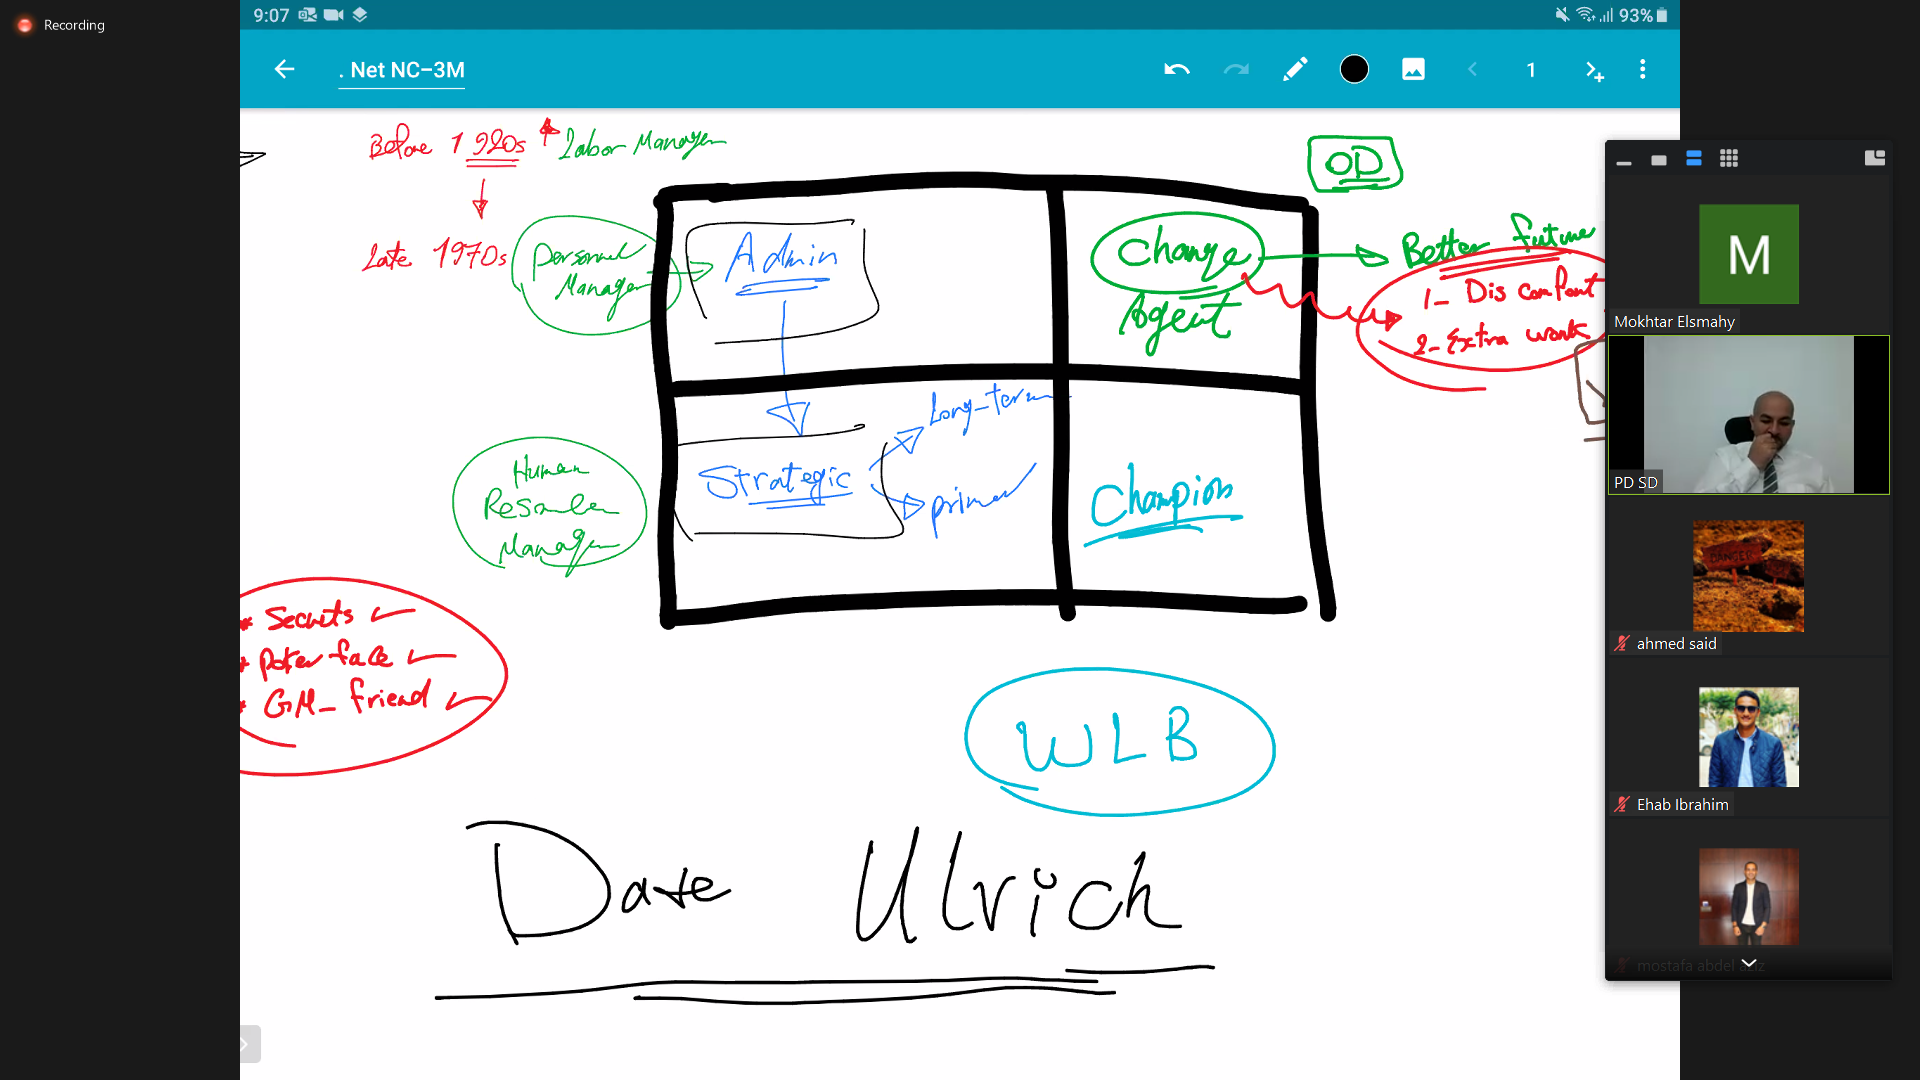 Recording
9:07
93%
. Net NC-3M
1
Before 1920s
Labor Manager
OD
Late 1970s
Personnel
Manager
Admin
Change
Agent
Better future
1- Dis comfort
2- Extra work
Long-term
Strategic
Human
Manager
Champion
* Secrets
* Poker face
* GM- friend
WLB
Date Ulrich
M
Mokhtar Elsmahy
PD SD
DANGER
ahmed said
Ehab Ibrahim
mostafa abdel aziz